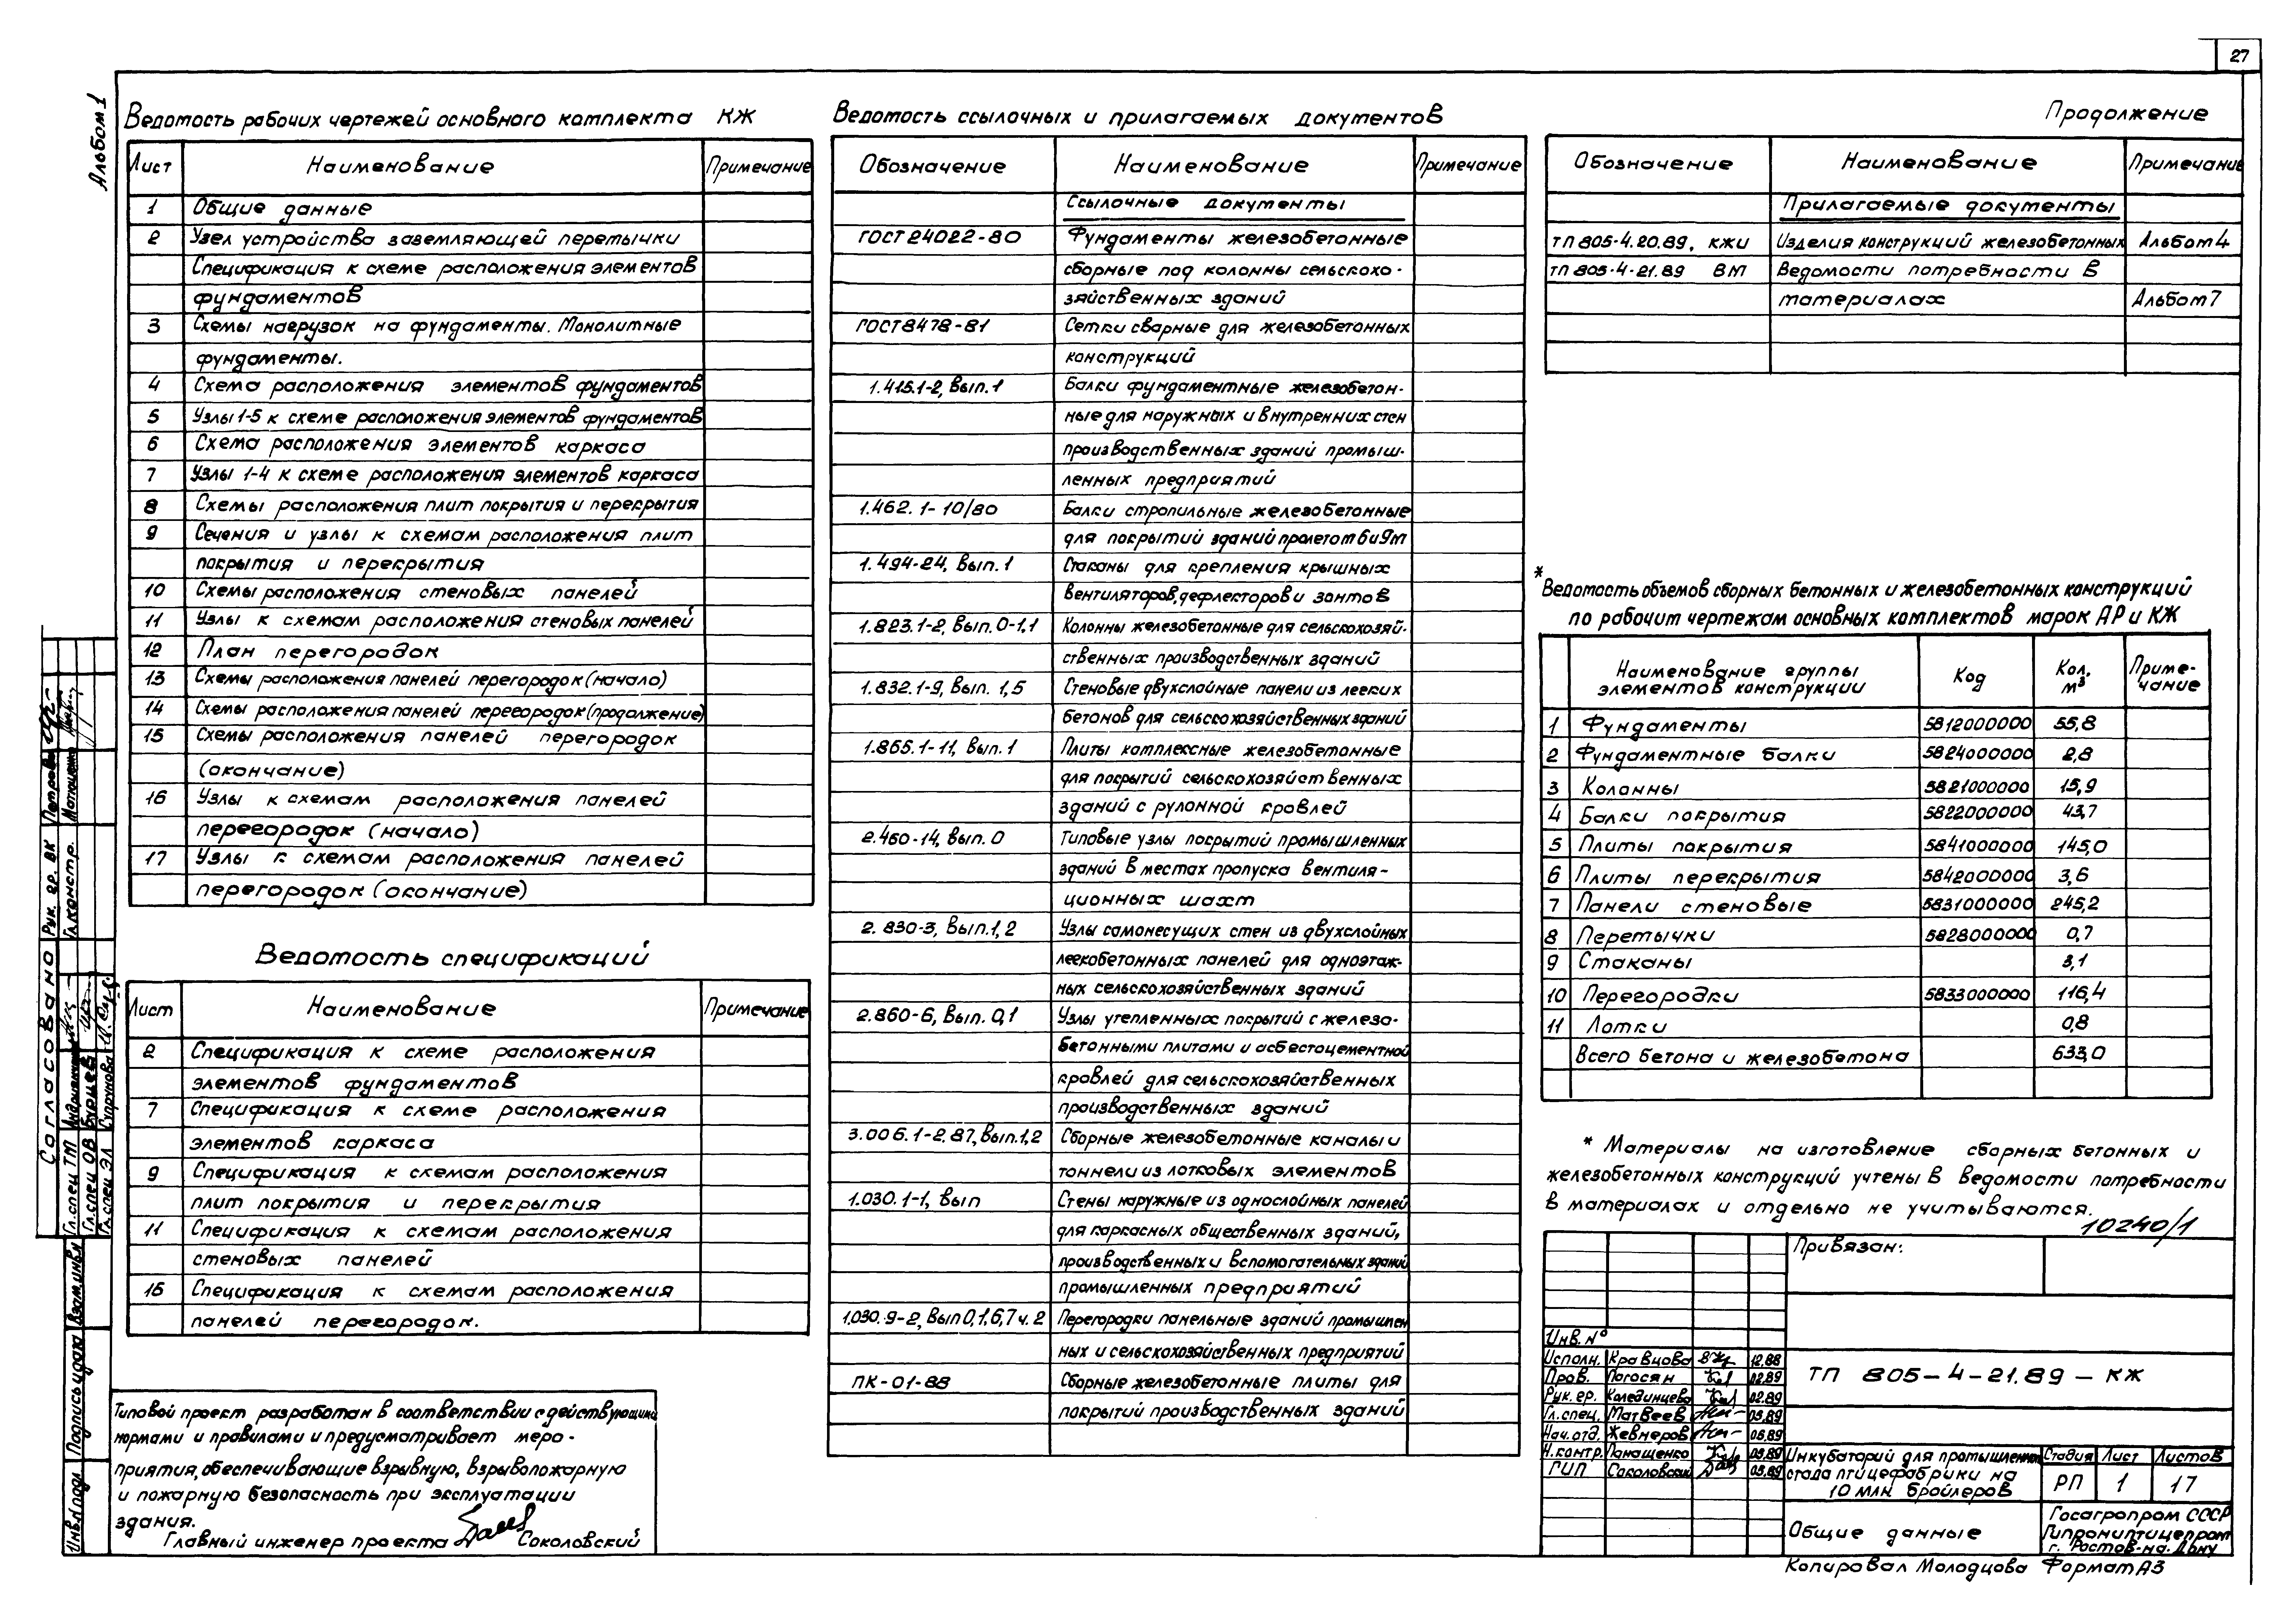 27
Альбом 1
Ведомость рабочих чертежей основного комплекта КЖ
Лист Наименование Примечание
1 Общие данные
2 Узел устройства заземляющей перемычки
Спецификация к схеме расположения элементов
фундаментов
3 Схемы нагрузок на фундаменты. Монолитные
фундаменты.
4 Схема расположения элементов фундаментов
5 Узлы 1-5 к схеме расположения элементов фундаментов
6 Схема расположения элементов каркаса
7 Узлы 1-4 к схеме расположения элементов каркаса
8 Схемы расположения плит покрытия и перекрытия
9 Сечения и узлы к схемам расположения плит
покрытия и перекрытия
10 Схемы расположения стеновых панелей
11 Узлы к схемам расположения стеновых панелей
12 План перегородок
13 Схемы расположения панелей перегородок (начало)
14 Схемы расположения панелей перегородок (продолжение)
15 Схемы расположения панелей перегородок
(окончание)
16 Узлы к схемам расположения панелей
перегородок (начало)
17 Узлы к схемам расположения панелей
перегородок (окончание)
Ведомость спецификаций
Лист Наименование Примечание
2 Спецификация к схеме расположения
элементов фундаментов
7 Спецификация к схеме расположения
элементов каркаса
9 Спецификация к схемам расположения
плит покрытия и перекрытия
11 Спецификация к схемам расположения
стеновых панелей
15 Спецификация к схемам расположения
панелей перегородок.
Типовой проект разработан в соответствии с действующими
нормами и правилами и предусматривает меро-
приятия, обеспечивающие взрывную, взрывопожарную
и пожарную безопасность при эксплуатации
здания.
Главный инженер проекта Соколовский
Ведомость ссылочных и прилагаемых документов
Обозначение Наименование Примечание
Ссылочные документы
ГОСТ 24022-80 Фундаменты железобетонные
сборные под колонны сельскохо-
зяйственных зданий
ГОСТ 8478-81 Сетки сварные для железобетонных
конструкций
1.415.1-2, Вып. 1 Балки фундаментные железобетон-
ные для наружных и внутренних стен
производственных зданий промыш-
ленных предприятий
1.462.1-10/80 Балки стропильные железобетонные
для покрытий зданий пролетом 6 и 9м
1.494-24, Вып. 1 Стаканы для крепления крышных
вентиляторов, дефлекторов и зонтов
1.823.1-2, Вып. 0-1,1 Колонны железобетонные для сельскохозяй-
ственных производственных зданий
1.832.1-9, Вып. 1,5 Стеновые двухслойные панели из легких
бетонов для сельскохозяйственных зданий
1.865.1-11, Вып. 1 Плиты комплексные железобетонные
для покрытий сельскохозяйственных
зданий с рулонной кровлей
2.460-14, Вып. 0 Типовые узлы покрытий промышленных
зданий в местах пропуска вентиля-
ционных шахт
2.830-3, Вып. 1, 2 Узлы самонесущих стен из двухслойных
легкобетонных панелей для одноэтаж-
ных сельскохозяйственных зданий
2.860-6, Вып. 0,1 Узлы утепленных покрытий с железо-
бетонными плитами и асбестоцементной
кровлей для сельскохозяйственных
производственных зданий
3.006.1-2.87, Вып. 1,2 Сборные железобетонные каналы и
тоннели из лотковых элементов
1.030.1-1, Вып Стены наружные из однослойных панелей
для каркасных общественных зданий,
производственных и вспомогательных зданий
промышленных предприятий
1.030.9-2, Вып 0,1,6,7 ч. 2 Перегородки панельные зданий промышлен
ных и сельскохозяйственных предприятий
ПК-01-88 Сборные железобетонные плиты для
покрытий производственных зданий
Продолжение
Обозначение Наименование Примечание
Прилагаемые документы
ТП 805-4.20.89, КЖИ Изделия конструкций железобетонных Альбом 4
ТП 805-4-21.89 ВМ Ведомости потребности в
материалах Альбом 7
* Ведомость объемов сборных бетонных и железобетонных конструкций
по рабочим чертежам основных комплектов марок АР и КЖ
Наименование группы элементов конструкции Код Кол. м³ Приме-чание
1 Фундаменты 5812000000 55,8
2 Фундаментные балки 5824000000 2,8
3 Колонны 5821000000 15,9
4 Балки покрытия 5822000000 43,7
5 Плиты покрытия 5841000000 145,0
6 Плиты перекрытия 5842000000 3,6
7 Панели стеновые 5831000000 245,2
8 Перемычки 5828000000 0,7
9 Стаканы 3,1
10 Перегородки 5833000000 116,4
11 Лотки 0,8
Всего бетона и железобетона 633,0
* Материалы на изготовление сборных бетонных и
железобетонных конструкций учтены в ведомости потребности
в материалах и отдельно не учитываются.
10240/1
Привязан:
Инв. №
Исполн. Кравцова 12.88
Пров. Погосян 02.89
Рук. гр. Колединцева 02.89
Гл. спец. Матвеев 03.89
Нач. отд. Жевнеров 06.89
Н. контр. Панащенко 03.89
ГИП Соколовский 03.89
ТП 805-4-21.89-КЖ
Инкубаторий для промышленного
стада птицефабрики на
10 млн. бройлеров
Стадия Лист Листов
РП 1 17
Общие данные
Госагропром СССР
Гипрониптицепром
г. Ростов-на-Дону
Копировал Молодцова Формат А3
Согласовано
Рук. гр. ВК Петрова
Гл. констр.
Гл. спец ТМП
Гл. спец ОВ Бурцев
Гл. спец ЭЛ Супрунова
Инв. № подл. Подпись и дата Взам. инв. №